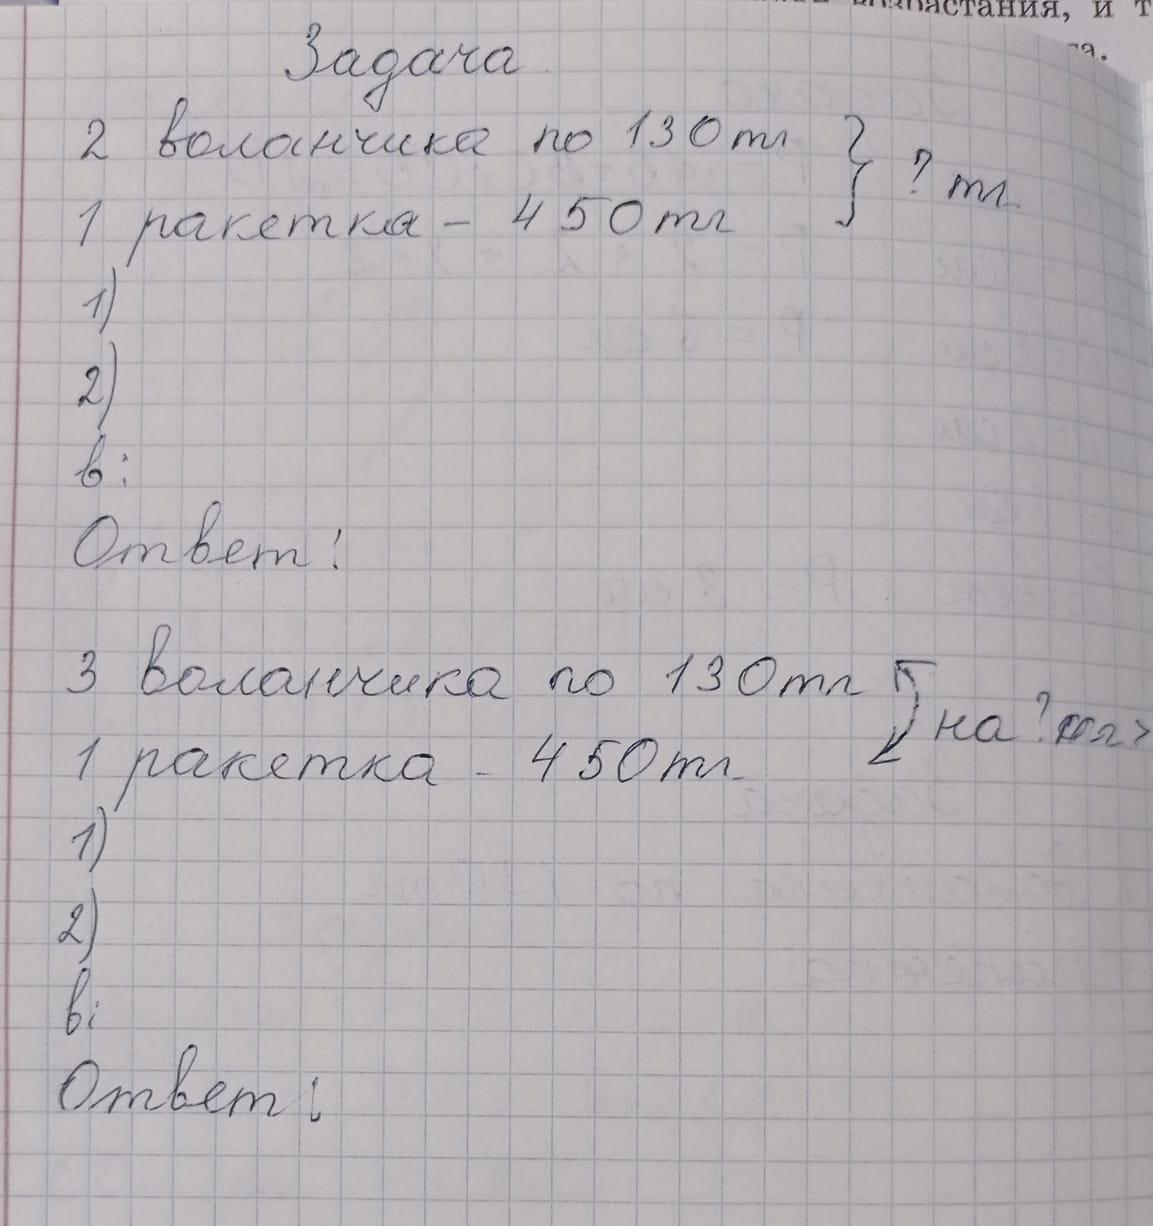 растания, и т
Задача
2 воланчика по 130 тг } ? тг.
1 ракетка – 450 тг
1)
2)
в:
Ответ:
3 воланчика по 130 тг
на ? >
1 ракетка – 450 тг
1)
2)
в:
Ответ: